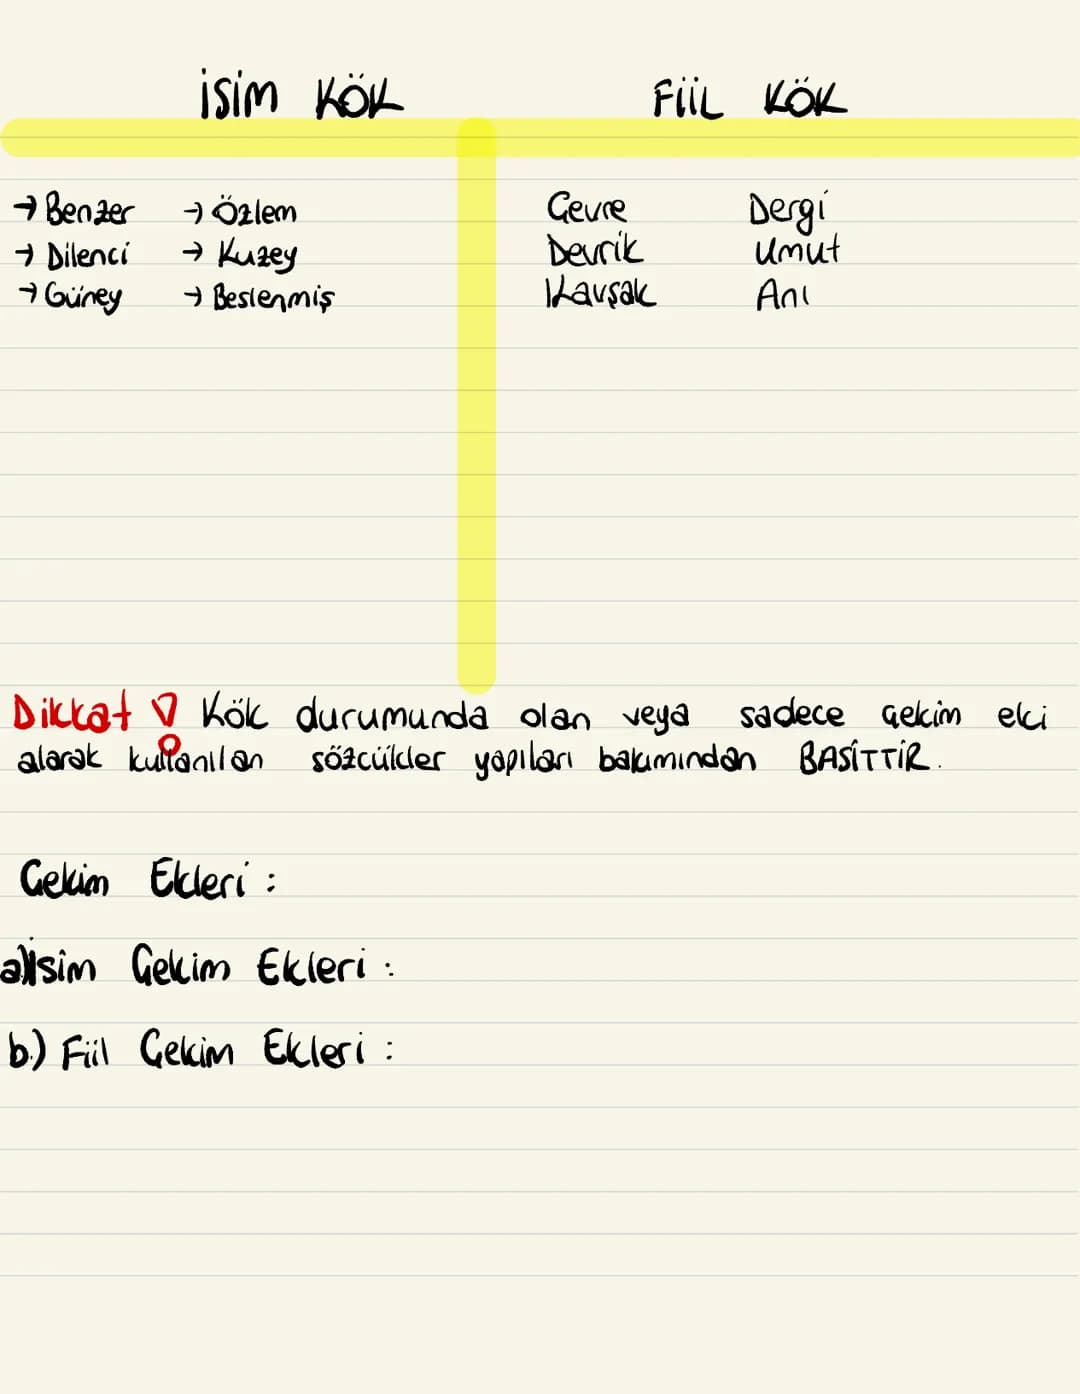 İSİM KÖK FİİL KÖK
→ Benzer → Özlem Çevre Dergi
→ Dilenci → Kuzey Devrik Umut
→ Güney → Beslenmiş Kavşak Anı
Dikkat ! Kök durumunda olan veya sadece çekim eki
alarak kullanılan sözcükler yapıları bakımından BASİTTİR.
Çekim Ekleri :
a)İsim Çekim Ekleri :
b.) Fiil Çekim Ekleri :